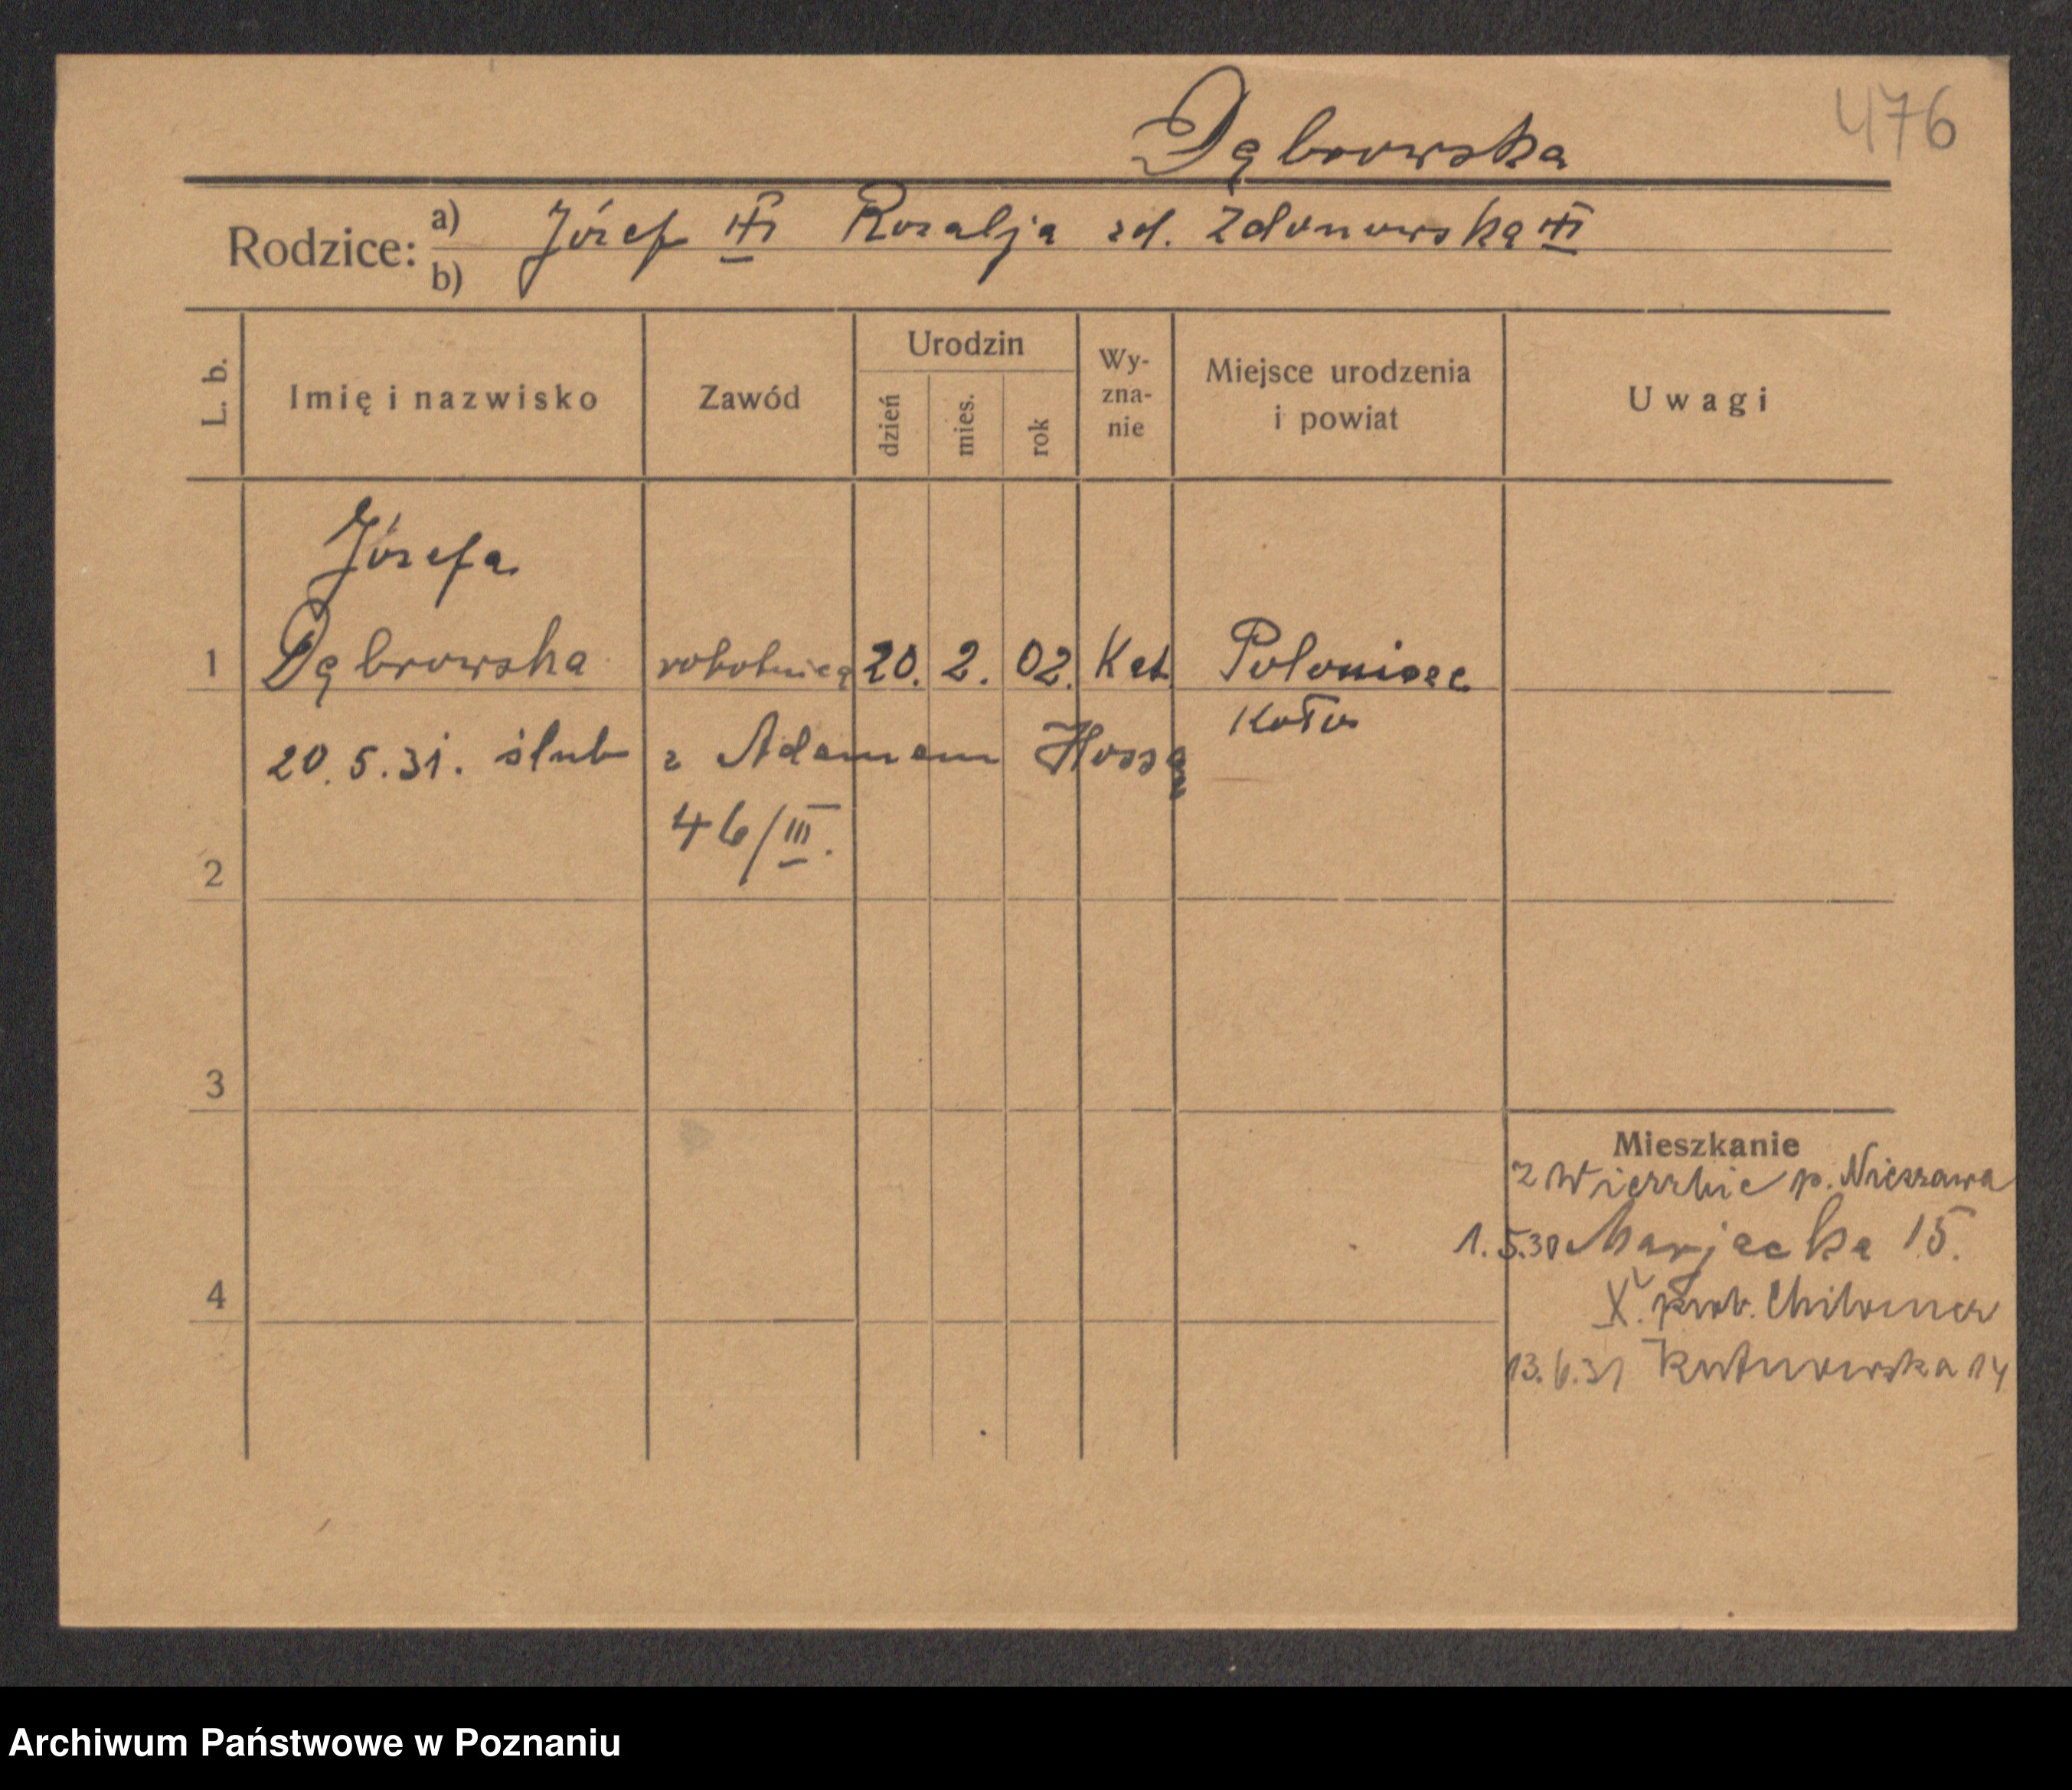 476
Dąbrowska
Rodzice: a) Józef III Rozalja zd. Zdonowska III
b)
L. b.
Imię i nazwisko
Zawód
Urodzin
dzień
mies.
rok
Wy-
zna-
nie
Miejsce urodzenia
i powiat
Uwagi
Józefa
1 Dąbrowska robotnica 20. 2. 02. Kat. Polonisz
Koło
20.5.31. ślub z Adamem Hossą
46/III.
2
3
Mieszkanie
z Wierzbie p. Nieszawa
1.5.30 Marjacka 15.
X. prob.
4
13.6.31 Kutnowska 14
Archiwum Państwowe w Poznaniu